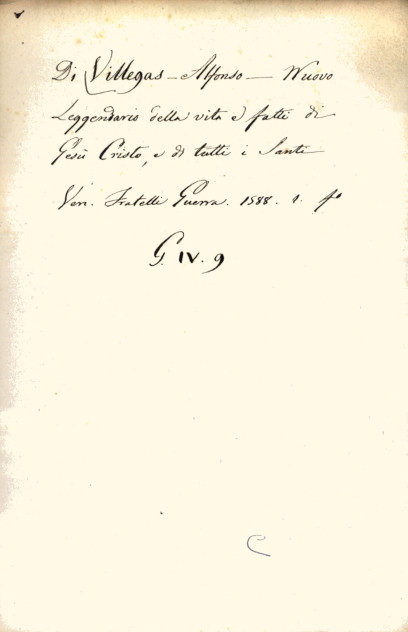 Di Villegas - Alfonso - Nuovo
Leggendario della vita e fatti di
Gesù Cristo, e di tutti i Santi
Ven. Fratelli Guerra. 1588. 1. fo
G. IV. 9
C